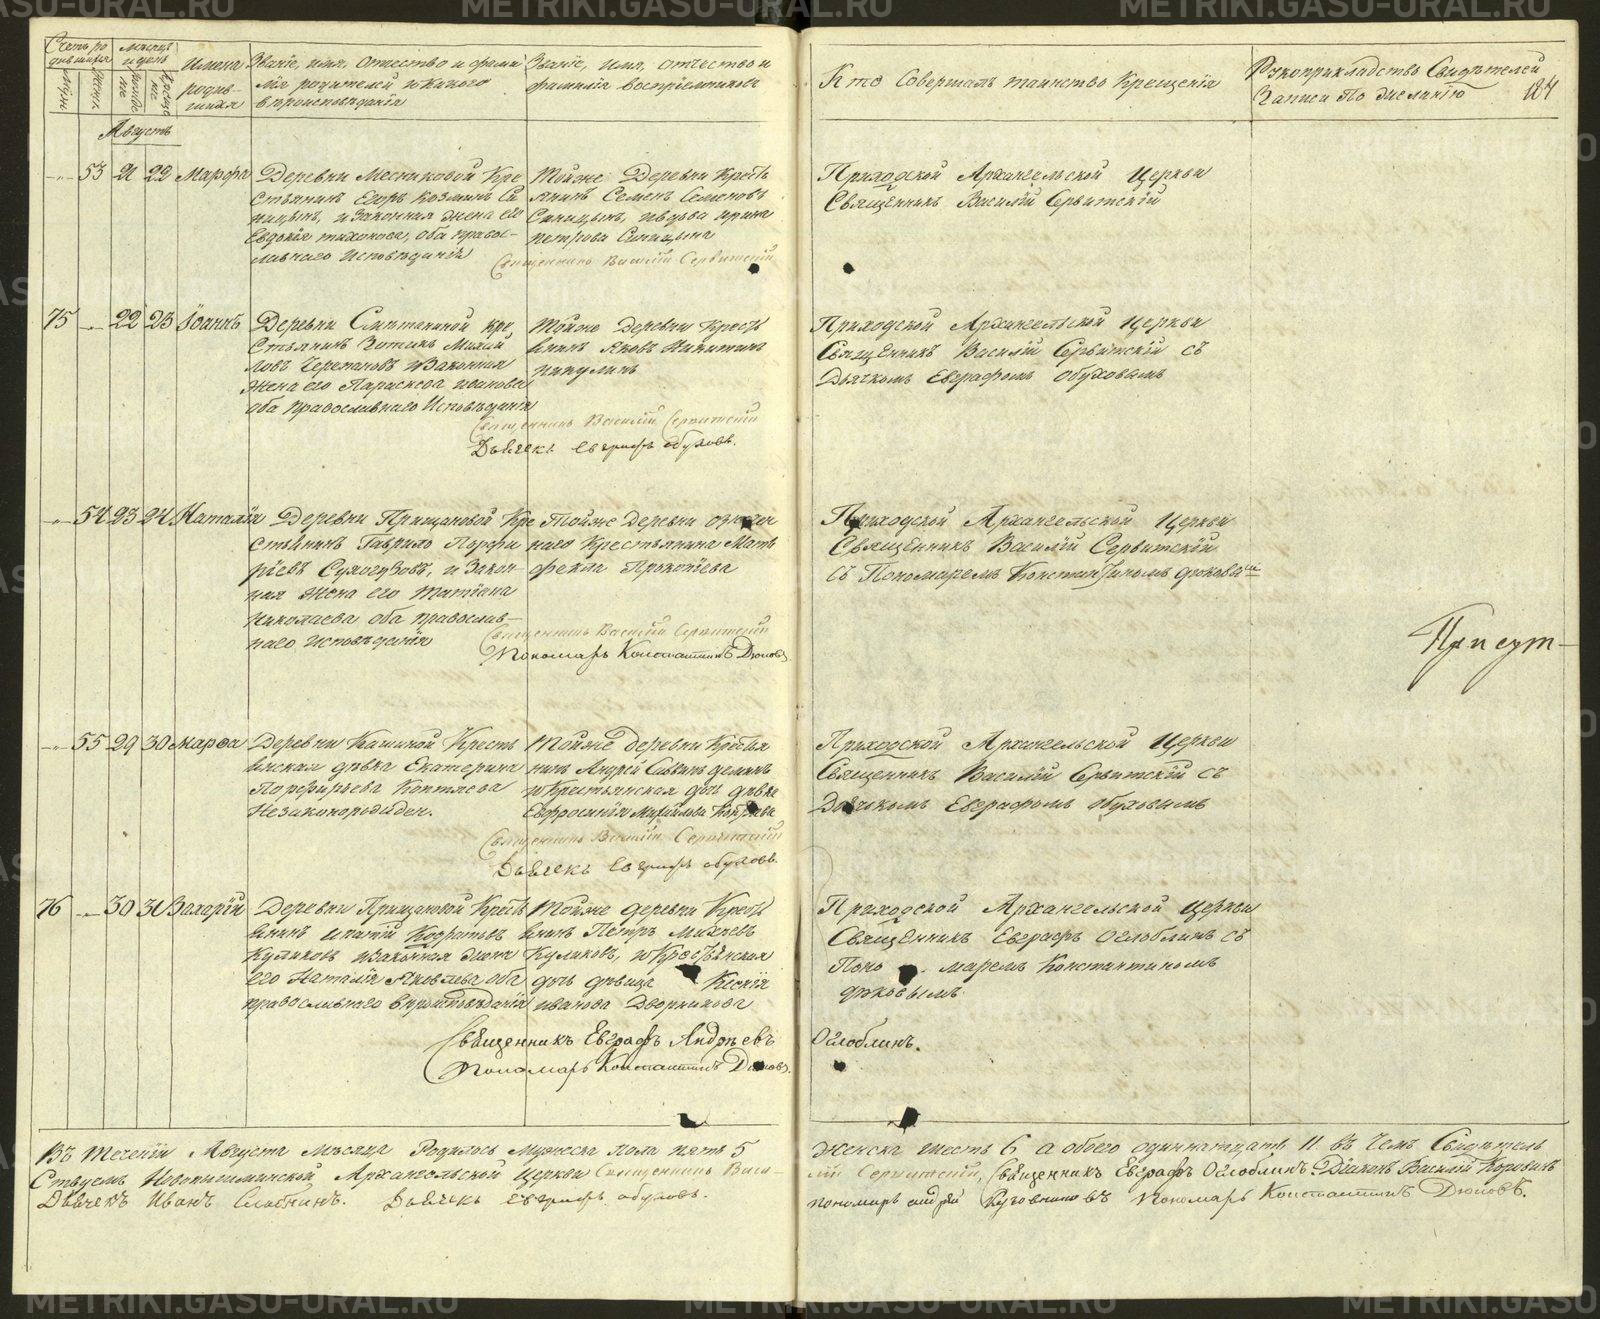 Счетъ родившихся
Мѣсяцъ и день
Имена родившихся
Званіе, имя, отечество и фамилія родителей и какого вѣроисповѣданія
Званіе, имя, отчество и фамилія воспріемниковъ
Кто Совершалъ таинство Крещенія
Рукоприкладство Свидѣтелей Записи По Желанію
184
Августъ
53 21 22 Марфа
Деревни Месниковой Кре
стьянинъ Егоръ Козминъ Си
ницынъ, и законная жена его
Евдокія тихонова, оба право-
славнаго Исповѣданія
Тойже Деревни Кресть
янинъ Семенъ Семеновъ
Синицынъ, и вдова ирина
петрова Синицына
Священникъ Василій Сервитскій
Приходской Архангельской Церкви
Священникъ Василій Сервитскій
75 22 23 Іоаннъ
Деревни Сметаниной Кре
стьянинъ Зотикъ Михай
ловъ Черепановъ и Законная
жена его Параскева иванова
оба православнаго Исповѣданія
Тойже Деревни Кресть
янинъ Яковъ Никитинъ
пикулинъ
Священникъ Василій Сервитскій
Дьячекъ Евграфъ обуховъ.
Приходской Архангельской Церкви
Священникъ Василій Сервитскій съ
Дьячкомъ Евграфомъ обуховымъ
54 23 24 Наталія
Деревни Прищановой Кре
стьянинъ Гаврило Порфи
рьевъ Сухогузовъ, и Закон-
ная жена его Татіана
Николаева оба православ-
наго исповѣданія
Тойже Деревни означен
наго Крестьянина Мать
фекла Прокопіева
Священникъ Василій Сервитскій
Пономарь Константинъ Дюковъ
Приходской Архангельской Церкви
Священникъ Василій Сервитскій
съ Пономаремъ Константиномъ дюковым
Присут-
55 29 30 марфа
Деревни Кашиной Кресть
янская дѣвка Екатерина
Порфирьева Коптяева
Незаконорожден.
Тойже деревни Крестья
нинъ Андрей Саввинъ деминъ
и Крестьянская дочь дѣвка
Евфросинія Михайлова
Священникъ Василій Сервитскій
Дьячекъ Евграфъ обуховъ.
Приходской Архангельской Церкви
Священникъ Василій Сервитскій съ
Дьячкомъ Евграфомъ обуховымъ
76 30 31 Захарій
Деревни Прищановой Кресть
янинъ ипатій Кодратьевъ
Куликовъ и законная жена
его Наталія Яковлева оба
православнаго вѣроисповѣданія
Тойже деревни Кресть
янинъ Петръ Михеевъ
Куликовъ, и Крестьянская
дочь дѣвица Ксенія
иванова Дворникова
Священникъ Евграфъ Андреевъ Оглоблинъ.
Пономарь Константинъ Дюковъ.
Приходской Архангельской Церкви
Священникъ Евграфъ Оглоблинъ съ
Поно маремъ Константиномъ
дюковымъ
Въ теченіи Августа Мѣсяца Родилось Мужеска пола пять 5 женска шесть 6 а обоего одиннатцать 11 въ чемъ Свидѣтель
ствуемъ Новопышминской Архангельской Церкви Священникъ Васи-лій Сервитскій, Священникъ Евграфъ Оглоблинъ. Діаконъ Василій Коровинъ
Дьячекъ Иванъ Слобнинъ. Дьячекъ Евграфъ обуховъ. пономарь андрей Пономарь Константинъ Дюковъ.
METRIKI.GASU-URAL.RU